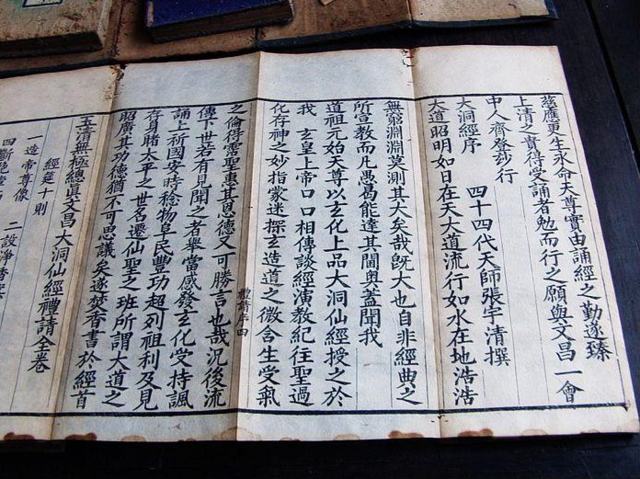 慈應更生永命天尊實由誦經之勤遂臻
上清之貴得受誦者勉而行之願與文昌一會
中人齊登莎行
大洞經序 四十四代天師張宇清撰
大道昭明如日在天大道流行如水在地浩浩
無窮淵淵莫測其大矣哉旣大也自非經典之
所宣教而凡愚曷能達其閫奥蓋聞我
道祖元始天尊以玄化上品大洞仙經授之於
我 玄皇上帝口口相傳談經演教紀往聖過
化存神之妙指蒙迷探玄造道之微含生受氣
之倫得霑聖惠其恩德又可勝言也哉况後流
傳于世若有見聞之者舉當感發玄化受持諷
誦上祈國安時稔物阜民豐功超列祖利及見
存身賭太平之世名遷仙聖之班所謂大道之
昭廣其功德猶不可思議矣遂焚香書於經首
玉清無極總真文昌大洞仙經禮請全卷
經筵十則
一造帝尊像 二設淨香案